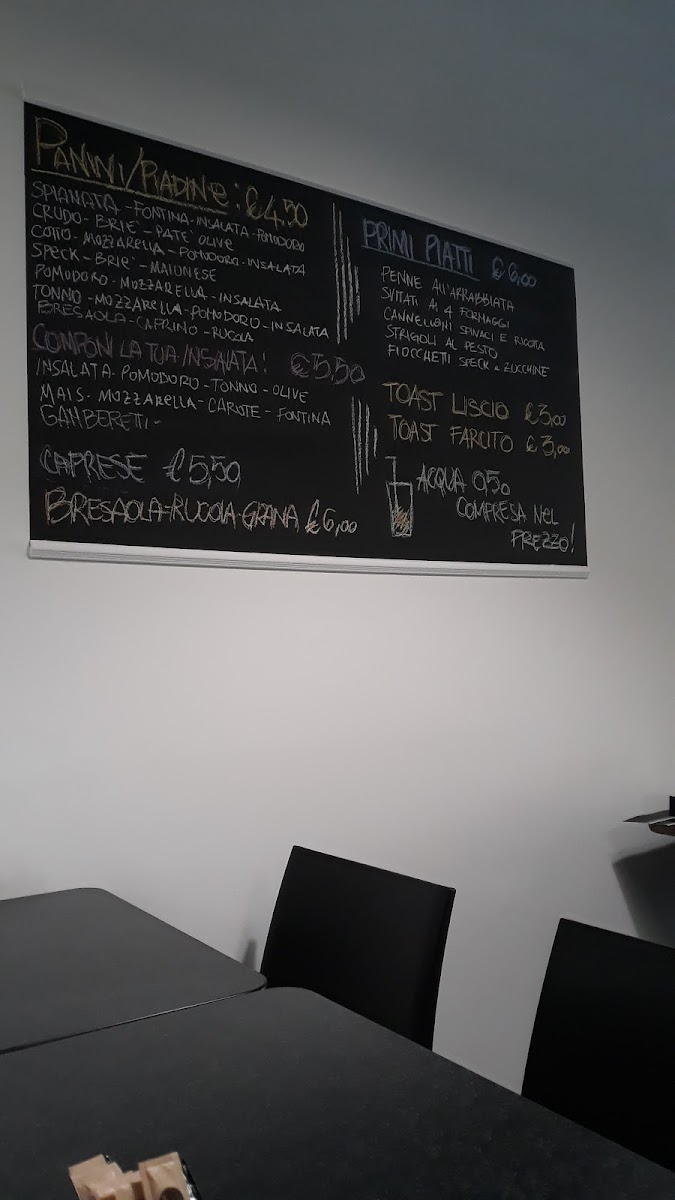 PANINI/PIADINE: €4.50
SPIANATA - FONTINA - INSALATA - POMODORO
CRUDO - BRIE' - PATE' OLIVE
COTTO - MOZZARELLA - POMODORO - INSALATA
SPECK - BRIE' - MAIONESE
POMODORO - MOZZARELLA - INSALATA
TONNO - MOZZARELLA - POMODORO - INSALATA
BRESAOLA - CAPRINO - RUCOLA
COMPONI LA TUA INSALATA! €5,50
INSALATA - POMODORO - TONNO - OLIVE
MAIS - MOZZARELLA - CAROTE - FONTINA
GAMBERETTI -
CAPRESE €5,50
BRESAOLA - RUCOLA - GRANA €6,00
PRIMI PIATTI €6,00
PENNE ALL'ARRABBIATA
SVITATI AI 4 FORMAGGI
CANNELLONI SPINACI E RICOTTA
STRIGOLI AL PESTO
FIOCCHETTI SPECK e ZUCCHINE
TOAST LISCIO €3,00
TOAST FARCITO €3,00
ACQUA 0,50
COMPRESA NEL
PREZZO!